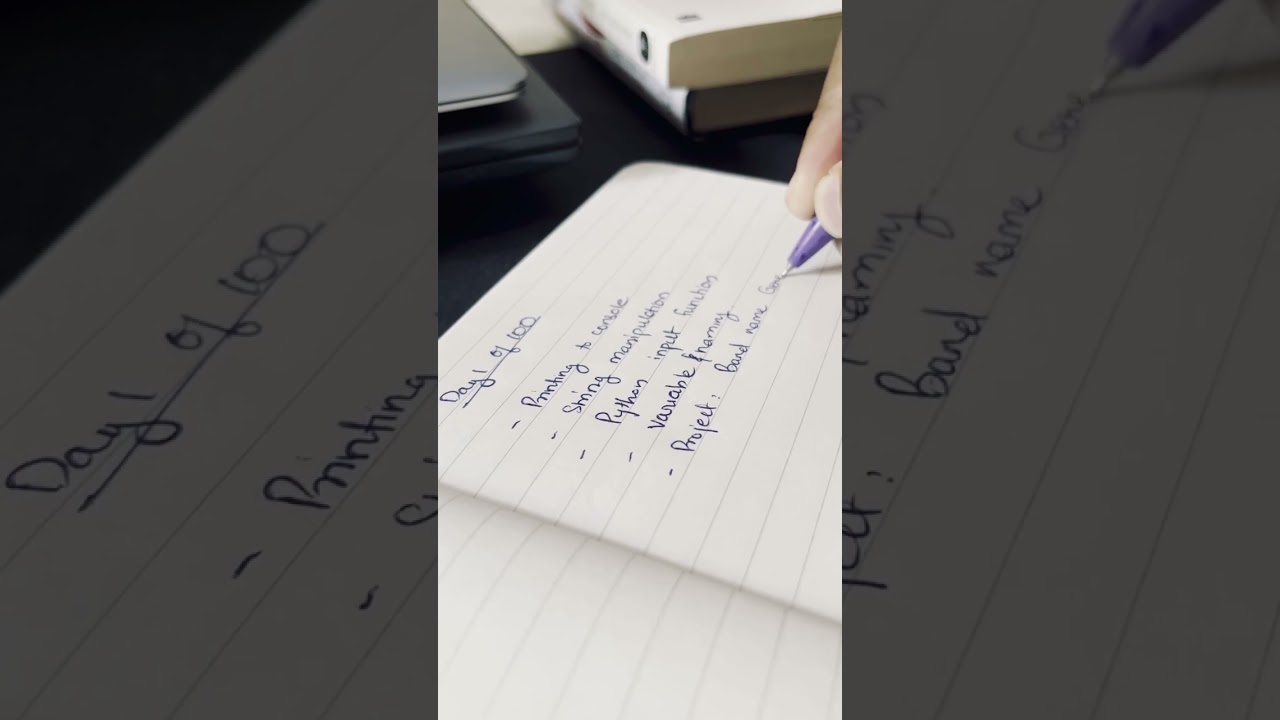 Day 1 of 100
- Printing to console
- String manipulation
- Python input function
- Variable & naming
- Project: Band name Gene